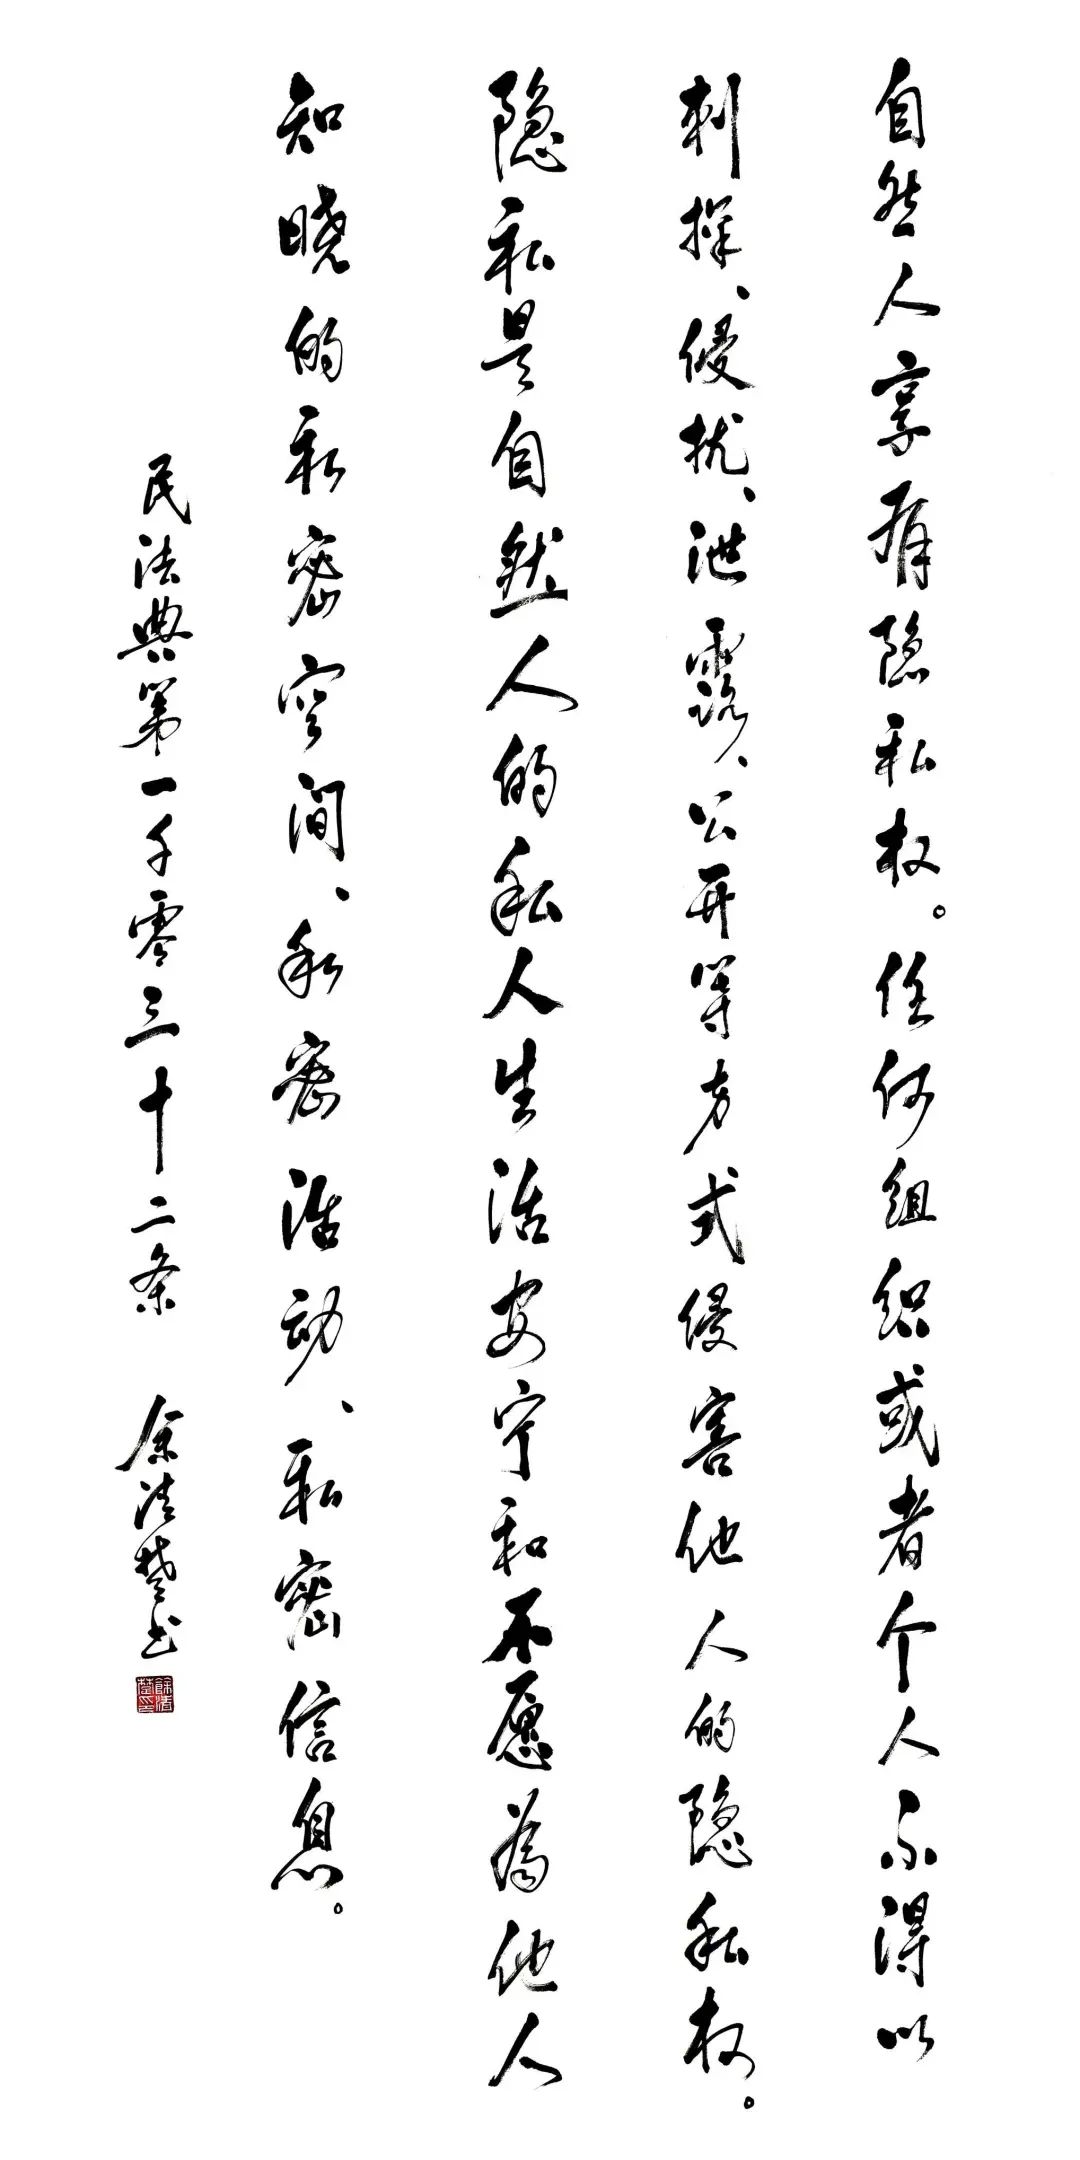 自然人享有隐私权。任何组织或者个人不得以
刺探、侵扰、泄露、公开等方式侵害他人的隐私权。
隐私是自然人的私人生活安宁和不愿為他人
知晓的私密空间、私密活动、私密信息。
民法典第一千零三十二条 余清楚书
餘清楚印